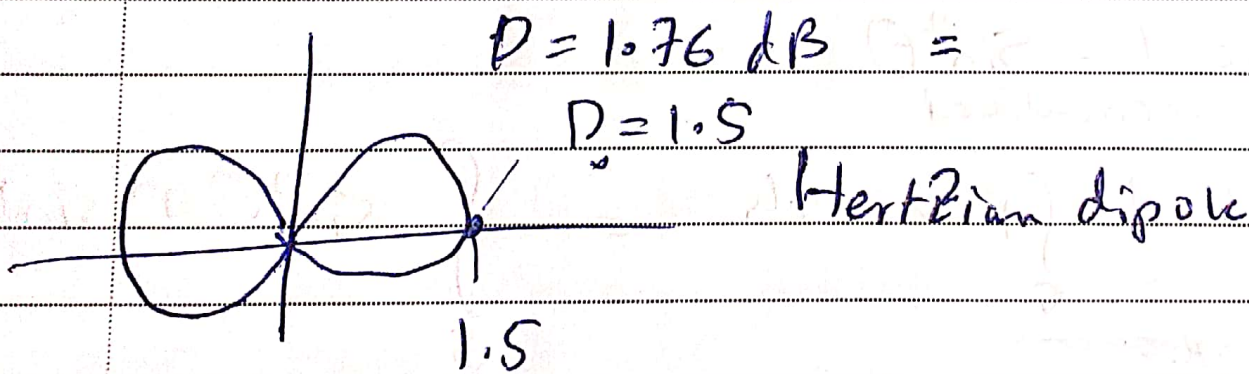 D = 1.76 dB =
D = 1.5
Hertzian dipole
1.5